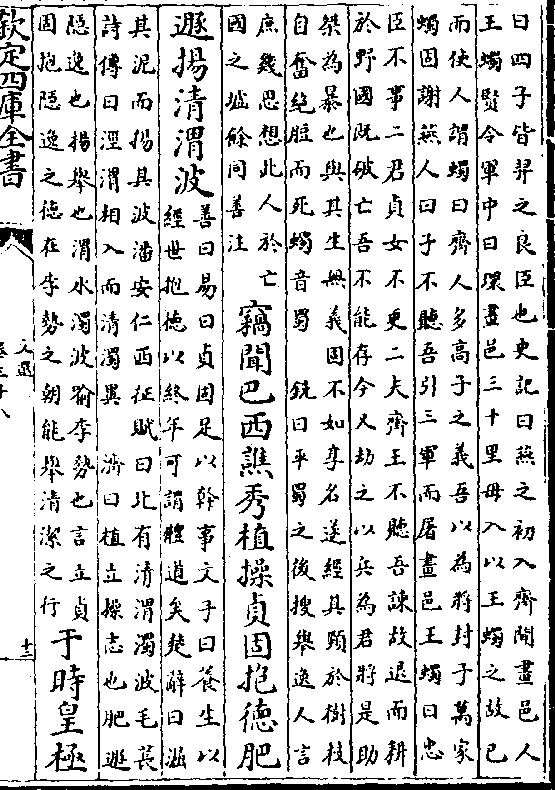 曰四子皆羿之良臣也史記曰燕之初入齊聞畫邑人
王蠋賢令軍中曰環畫邑三十里毋入以王蠋之故已
而使人謂蠋曰齊人多高子之義吾以為將封子萬家
蠋固謝燕人曰子不聽吾引三軍而屠畫邑王蠋曰忠
臣不事二君貞女不更二夫齊王不聽吾諫故退而耕
於野國既破亡吾不能存今又劫之以兵為君將是助
桀為暴也與其生無義固不如享名遂經其頸於樹枝
自奮絕脰而死蠋音蜀 銑曰平蜀之後搜舉逸人言
庶幾思想此人於亡
國之墟餘同善注
竊聞巴西譙秀植操貞固抱德肥
遯揚清渭波
善曰易曰貞固足以幹事文子曰養生以
經世抱德以終年可謂體道矣楚辭曰淈
其泥而揚其波潘安仁西征賦曰北有清渭濁波毛萇
詩傳曰涇渭相入而清濁異 濟曰植立操志也肥遯
隱逸也揚舉也渭水濁波喻李勢也言立貞
固抱隱逸之德在李勢之朝能舉清潔之行
于時皇極
欽定四庫全書
文選
卷三十八